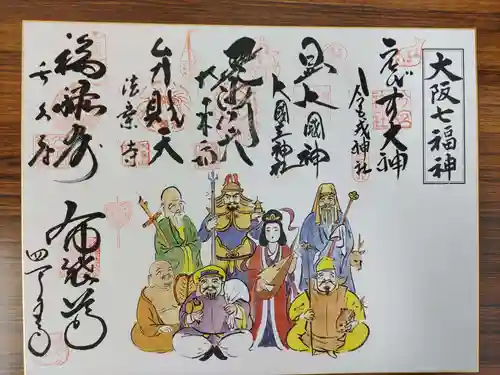 大阪七福神
ゑびす大神
今宮戎神社
大國神
大國主神社
毘沙門天
大乗坊
弁財天
法案寺
福禄寿
長久寺
布袋尊
四天王寺